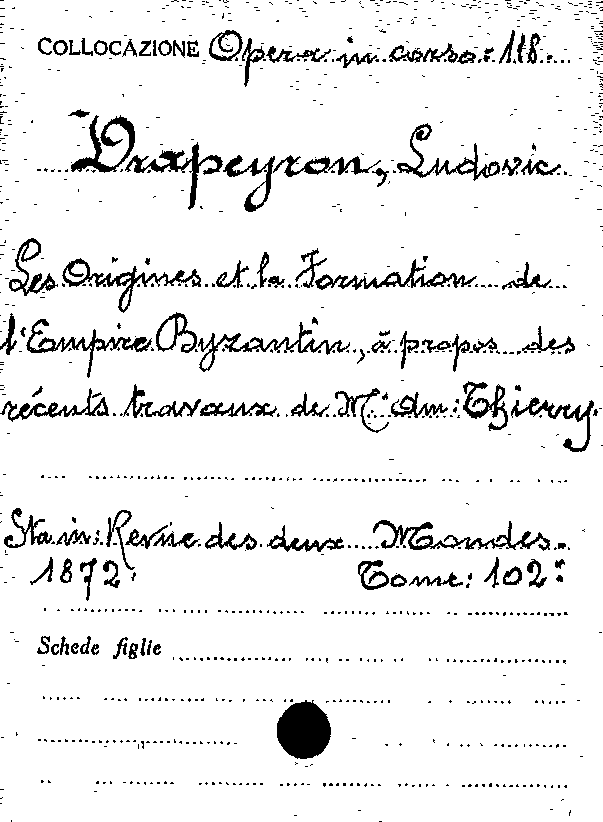 COLLOCAZIONE Opera in corso: 118.
Drapeyron, Ludovic
Les Origines et la Formation de
l'Empire Byzantin, à propos des
récents travaux de Mr. Am: Thierry.
Sta in: Revue des deux Mondes.
1872. Tome: 102º
Schede figlie